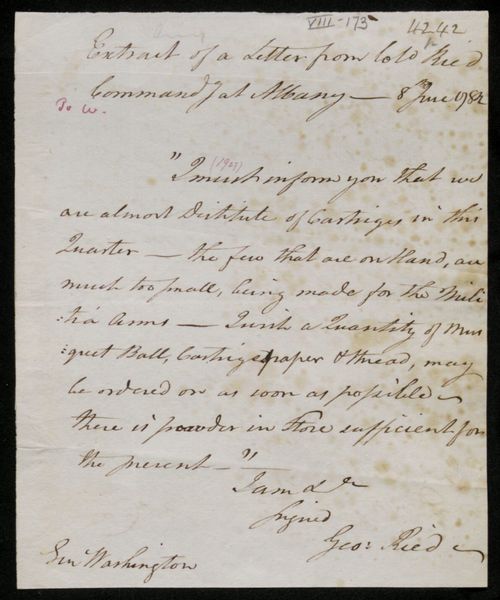 VIII-173
4242
Extract of a Letter from Colo Ried
Command.g at Albany — 8th June 1782
To W.
(1907)
"I must inform you that we
are almost Distitute of Cartriges in this
Quarter — the few that are on Hand, are
much too small, being made for the Mili
:tia Arms — I wish a Quantity of Mus
:quet Ball, Cartrige paper & thread, may
be ordered on as soon as possible —
there is powder in Store sufficient for
the present —"
I am &c
Signed
Geo: Ried
Genl Washington